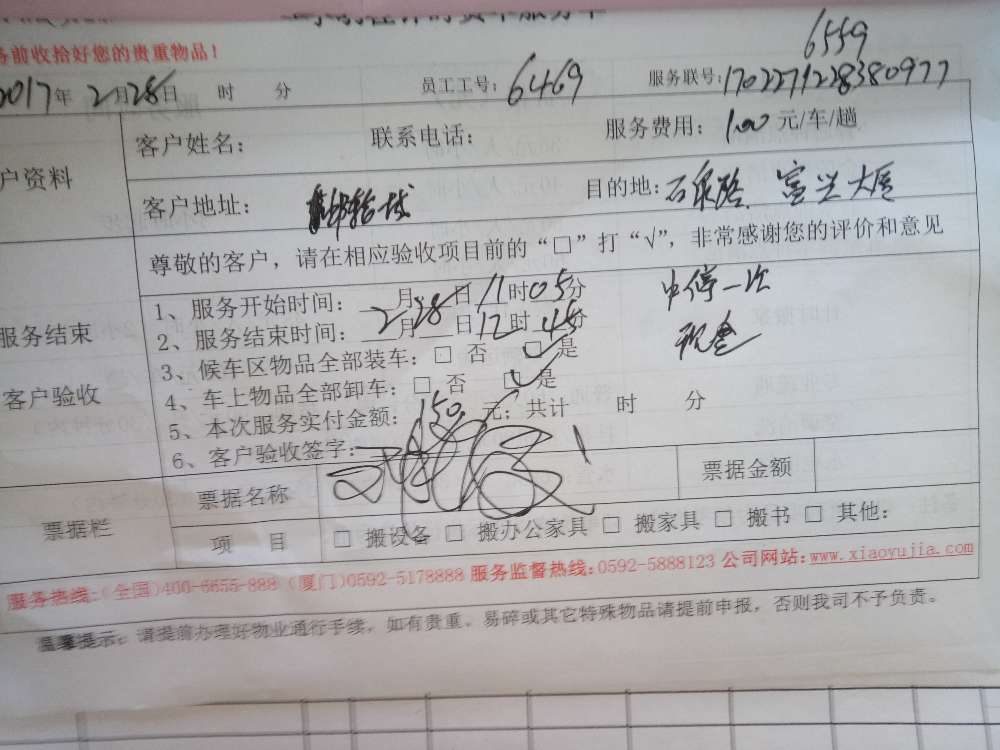 务前收拾好您的贵重物品！
6559
2017年 2月28日 时 分 员工工号: 6469 服务联号: 1702271228380977
户资料
客户姓名: 联系电话: 服务费用: 100 元/车/趟
客户地址: 目的地: 石泉路 富兴大厦
尊敬的客户，请在相应验收项目前的“□”打“√”，非常感谢您的评价和意见
服务结束
客户验收
1、服务开始时间: 2月28日 11时05分 中停一次
2、服务结束时间: 月 日12时45分 现金
3、候车区物品全部装车: □ 否 ☑ 是
4、车上物品全部卸车: □ 否 ☑ 是
5、本次服务实付金额: 150 元; 共计 时 分
6、客户验收签字:
票据栏
票据名称 票据金额
项 目 □ 搬设备 □ 搬办公家具 □ 搬家具 □ 搬书 □ 其他:
服务热线:(全国)400-6655-888 (厦门)0592-5178888 服务监督热线:0592-5888123 公司网站:www.xiaoyujia.com
温馨提示: 请提前办理好物业通行手续，如有贵重、易碎或其它特殊物品请提前申报，否则我司不予负责。